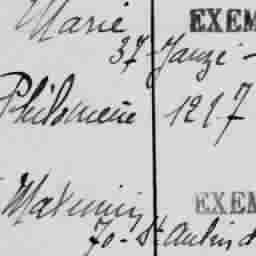 Marie EXEM
37 - Janzé -
Philomène 1217
Maximin EXEM
70 - St Aubin d